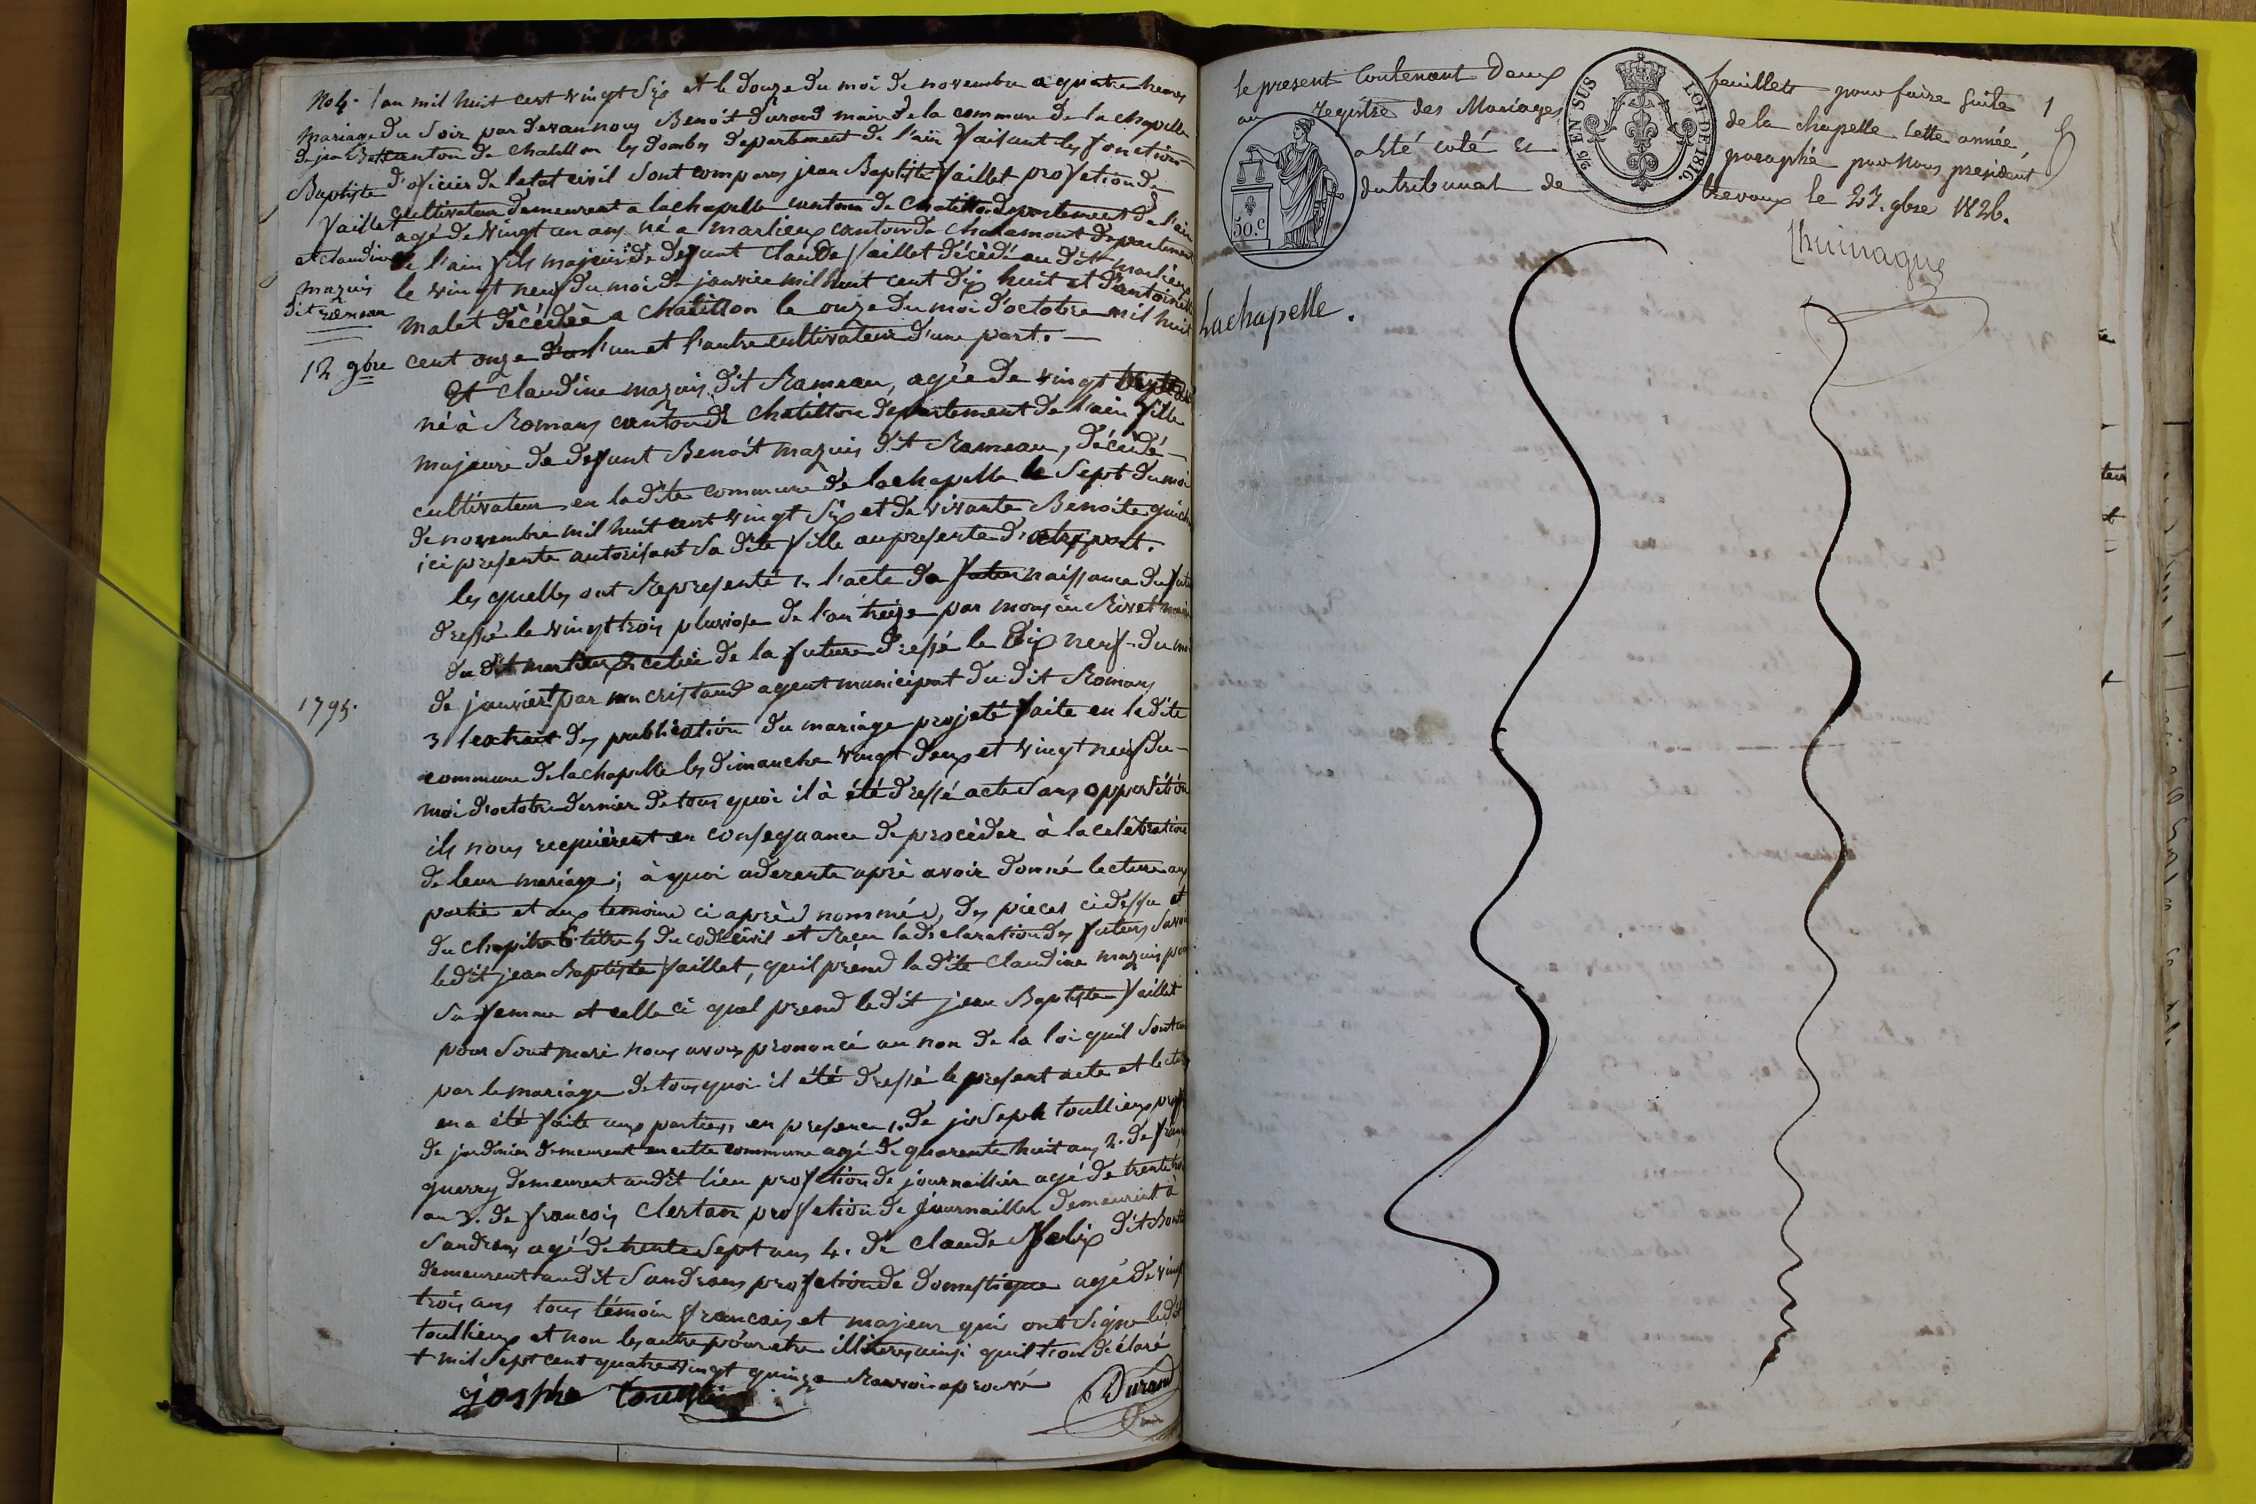 No 4.
mariage
de jean
Baptiste
Vaillet
et claudine
mazuis
dit rameau
12 9bre
1795.
l'an mil huit cent vingt Six et le douze du moi de novembre a quatre heures
du Soir par devan nous Benoît durand maire de la commune de la chapelle
canton de chatillon les dombes departement de l'ain faisant les fonctions
d'oficier de letat civil Sont comparus jean Baptiste Vaillet profetion de
cultivateur demeurent a lachapelle canton de Chatillon departement de l'ain
agé de vingt un ans né a marlieux canton de chalamont departement
de l'ain fils majeur de defunt Claude Vaillet décédé au dit marlieux
le vingt neuf du moi de janvier mil huit cent dix huit et d'antoinette
malet décédée a chatillon le onze du moi d'octobre mil huit
cent onze l'un et l'autre cultivateur d'une part.
Et claudine mazuis dit Rameau, agée de vingt
né à Romans canton de chatillon departement de l'ain fille
majeure de defunt Benoit mazuis dit Rameau, décédé
cultivateur en la dite commune de lachapelle le Sept du moi
de novembre mil huit cent vingt Six et de vivante Benoite
ici presente autorisant Sa dite fille au presente d'autre part.
les quelles ont Representé 1. l'acte de naissance du futur
dressé le vingt trois pluviose de l'an treize par monsieu Rivet maire
du dit marlieux 2. celui de la future dressé le Dix neuf du moi
de janvier + par mon cristaud agent municipat du dit Romans
3 lextrait des publication du mariage projeté faite en la dite
commune de lachapelle les dimanche vingt deux et vingt neuf du
moi d'octobre dernier de tous quoi il à été dressé acte Sans opposition
ils nous requièrent en consequance de procèder à la celebration
de leur mariage; à quoi aderente aprè avoir donné lecture aux
partie et aux temoins ci après nommés, des pièces ci dessu et
du chapitre 6 titre 5 du code civil et Recu la déclaration des futurs Savoir
ledit jean Baptiste Vaillet, quil prend la dite Claudine mazuis pour
Sa femme et celle ci quel prend ledit jean Baptiste Vaillet
pour Sont mari nous avons prononcé au non de la loi quil Sont unis
par le mariage de tous quoi il été dressé le present acte et lecture
en a été faite aux parties, en presence 1. de joseph toullieux
de jardinier demeurent en cette commune agé de quarente huit ans 2. de
guerry demeurent audit lieu profetion de journaillier agé de trente
an 3. de francois Clertan profetion de journaillier demeurent à
Sandrans agé de trente Sept ans 4. de claude felix dit
demeurent audit Sandrans profetion de domestique agé de vingt
trois ans tous témoin francais et majeur qui ont Signé ledit
toullieux et non les autre pour etre illiteres ainsi quil lon déclaré
+ mil Sept cent quatre vingt quinze Ranvoi aprouvé
josephe toullieux
Durand
le present contenant deux feuillets pour faire suite
au registre des Mariages de la chapelle cette année,
a été coté et paraphé par nous president
du tribunal de trevoux le 23. 9bre 1826.
1
2/5 EN SUS
LOI DE 1816.
50.C
Lachapelle.